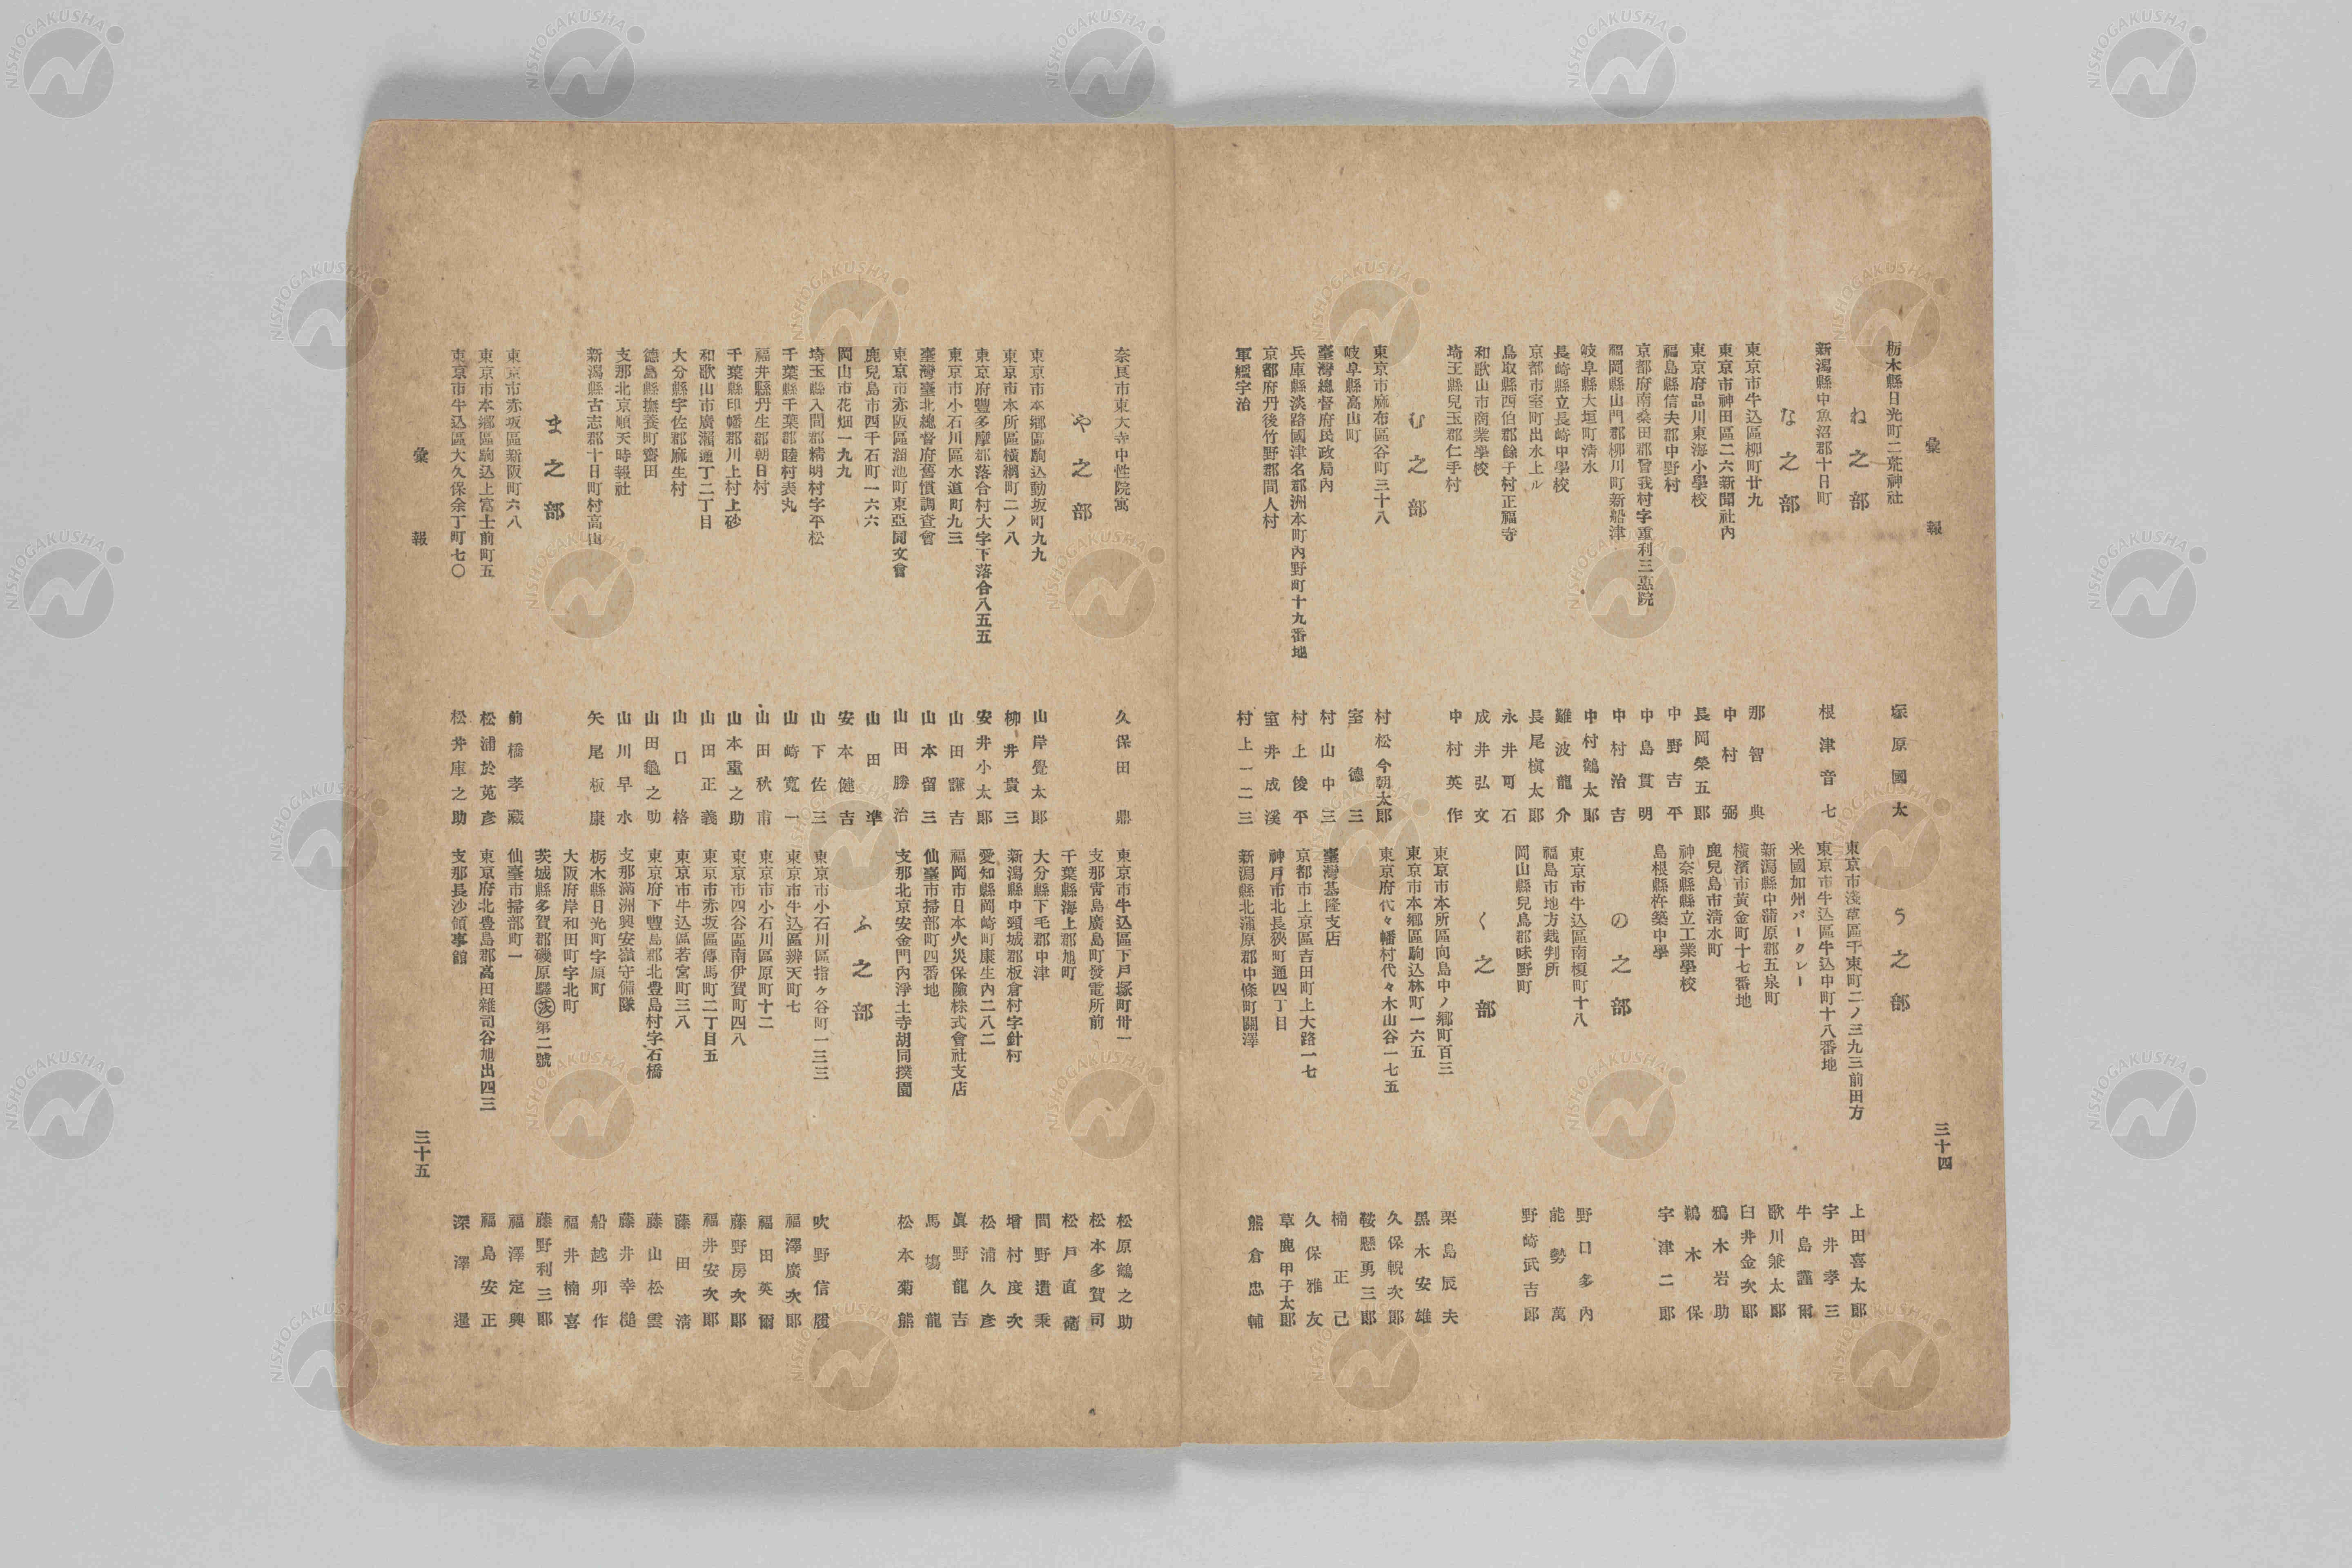 彙報
三十四
栃木縣日光町二荒神社 塚原國太
ね之部
新潟縣中魚沼郡十日町 根津音七
な之部
東京市牛込區柳町廿九 那智典
東京市神田區二六新聞社內 中村弼
東京府品川東海小學校 長岡榮五郞
福島縣信夫郡中野村 中野吉平
京都府南桑田郡曾我村字重利三惠院 中島貫明
福岡縣山門郡柳川町新船津 中村治吉
岐阜縣大垣町清水 中村鶴太郞
長崎縣立長崎中學校 難波龍介
京都市室町出水上ル 長尾槇太郞
鳥取縣西伯郡餘子村正福寺 永井可石
和歌山市商業學校 成井弘文
埼玉縣兒玉郡仁手村 中村英作
む之部
東京市麻布區谷町三十八 村松今朝太郞
岐阜縣高山町 室德三
臺灣總督府民政局內 村山中三
兵庫縣淡路國津名郡洲本町內野町十九番地 村上俊平
京都府丹後竹野郡間人村 室井成溪
軍艦宇治 村上一二三
う之部
東京市淺草區千束町二ノ三九三前田方 上田喜太郞
東京市牛込區牛込中町十八番地 宇井孝三
米國加州バークレー 牛島謹爾
新潟縣中蒲原郡五泉町 歌川兼太郞
橫濱市黃金町十七番地 臼井金次郞
鹿兒島市清水町 鵜木岩助
神奈縣縣立工業學校 鵜木保
島根縣杵築中學 宇津二郞
の之部
東京市牛込區南榎町十八 野口多內
福島市地方裁判所 能勢萬
岡山縣兒島郡味野町 野崎武吉郞
く之部
東京市本所區向島中ノ鄕町百三 栗島辰夫
東京市本鄕區駒込林町一六五 黑木安雄
東京府代々幡村代々木山谷一七五 久保䚄次郞
鞍懸勇三郞
臺灣基隆支店 楠正己
京都市上京區吉田町上大路一七 久保雅友
神戶市北長狹町通四丁目 草鹿甲子太郞
新潟縣北蒲原郡中條町關澤 熊倉忠輔
奈良市東大寺中性院寓 久保田鼎
や之部
東京市本鄕區駒込動坂町九九 山岸覺太郞
東京市本所區橫綱町二ノ八 柳井貴三
東京府豐多摩郡落合村大字下落合八五五 安井小太郞
東京市小石川區水道町九三 山田謙吉
臺灣臺北總督府舊慣調查會 山本留三
東京市赤阪區溜池町東亞同文會 山田勝治
鹿兒島市四千石町一六六 山田準
岡山市花畑一九九 安本健吉
埼玉縣入間郡精明村字平松 山下佐三
千葉縣千葉郡睦村表丸 山崎寬一
福井縣丹生郡朝日村 山田秋甫
千葉縣印幡郡川上村上砂 山本重之助
和歌山市廣瀨通丁二丁目 山田正義
大分縣宇佐郡麻生村 山口格
德島縣撫養町齋田 山田龜之助
支那北京順天時報社 山川早水
新潟縣古志郡十日町村高山 矢尾板康
ま之部
東京市赤坂區新阪町六八 前橋孝藏
東京市本鄕區駒込上富士前町五 松浦於菟彥
東京市牛込區大久保余丁町七〇 松井庫之助
東京市牛込區下戶塚町卅一 松原鶴之助
支那靑島廣島町發電所前 松本多賀司
千葉縣海上郡旭町 松戶直衞
大分縣下毛郡中津 間野遺秉
新潟縣中頸城郡板倉村字針村 增村度次
愛知縣岡崎町康生內二八二 松浦久彥
福岡市日本火災保險株式會社支店 眞野龍吉
仙臺市掃部町四番地 馬場龍
支那北京安金門內淨土寺胡同撲園 松本菊熊
ふ之部
東京市小石川區指ヶ谷町一三三 吹野信履
東京市牛込區辨天町七 福澤廣次郞
東京市小石川區原町十二 福田英爾
東京市四谷區南伊賀町四八 藤野房次郞
東京市赤坂區傳馬町二丁目五 福井安次郞
東京市牛込區若宮町三八 藤田清
東京府下豐島郡北豊島村字石橋 藤山松雲
支那滿洲興安嶺守備隊 藤井幸槌
栃木縣日光町字原町 船越卯作
大阪府岸和田町字北町 福井楠喜
茨城縣多賀郡磯原驛㊋第二號 藤野利三郞
仙臺市掃部町一 福澤定興
東京府北豊島郡高田雜司谷旭出四三 福島安正
支那長沙領事館 深澤暹
彙報
三十五